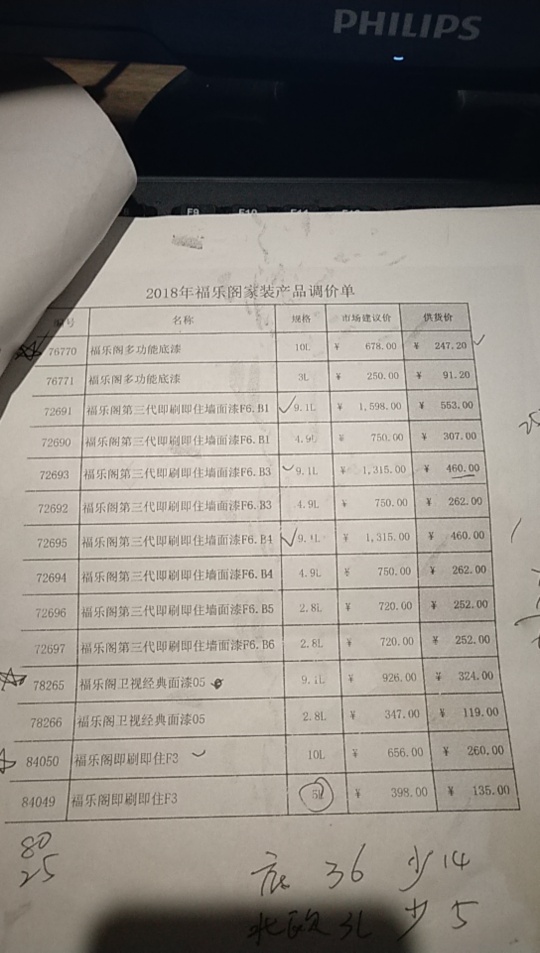 PHILIPS
F9 F10 F11 F12
2018年福乐阁家装产品调价单
编号 名称 规格 市场建议价 供货价
76770 福乐阁多功能底漆 10L ¥ 678.00 ¥ 247.20
76771 福乐阁多功能底漆 3L ¥ 250.00 ¥ 91.20
72691 福乐阁第三代即刷即住墙面漆F6.B1 9.1L ¥ 1,598.00 ¥ 553.00
72690 福乐阁第三代即刷即住墙面漆F6.B1 4.9L ¥ 750.00 ¥ 307.00
72693 福乐阁第三代即刷即住墙面漆F6.B3 9.1L ¥ 1,315.00 ¥ 460.00
72692 福乐阁第三代即刷即住墙面漆F6.B3 4.9L ¥ 750.00 ¥ 262.00
72695 福乐阁第三代即刷即住墙面漆F6.B4 9.1L ¥ 1,315.00 ¥ 460.00
72694 福乐阁第三代即刷即住墙面漆F6.B4 4.9L ¥ 750.00 ¥ 262.00
72696 福乐阁第三代即刷即住墙面漆F6.B5 2.8L ¥ 720.00 ¥ 252.00
72697 福乐阁第三代即刷即住墙面漆F6.B6 2.8L ¥ 720.00 ¥ 252.00
78265 福乐阁卫视经典面漆05 9.1L ¥ 926.00 ¥ 324.00
78266 福乐阁卫视经典面漆05 2.8L ¥ 347.00 ¥ 119.00
84050 福乐阁即刷即住F3 10L ¥ 656.00 ¥ 260.00
84049 福乐阁即刷即住F3 5L ¥ 398.00 ¥ 135.00
80
25
底 36 少14
北欧 3L 少 5